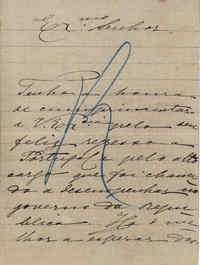 Ex.mo Senhor
Tenho a honra
de cumprimentar
a V. Ex.cia pelo seu
feliz regresso a
Portugal e pelo alto
cargo que foi chama
do a desempenhar no
governo da repu
blica. Ha
a esperar